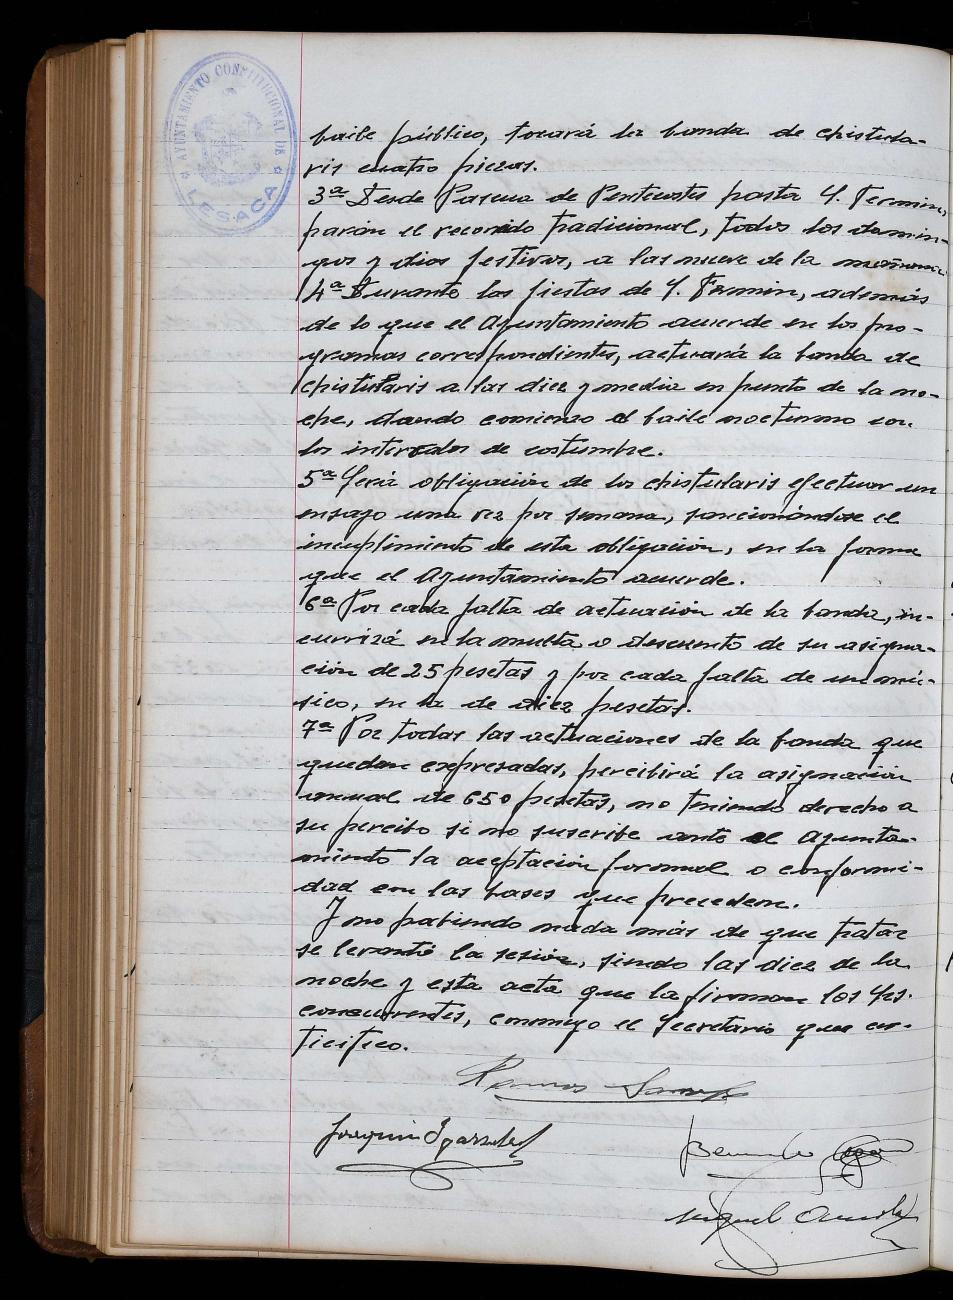 AYUNTAMIENTO CONSTITUCIONAL DE
LESACA
baile público, tocará la banda de chistula-
ris cuatro piezas.
3ª Desde Pascua de Pentecostés hasta S. Fermin,
harán el recorrido tradicional, todos los domin-
gos y dias festivos, a las nueve de la mañana.
4ª Durante las fiestas de S. Fermin, además
de lo que el Ayuntamiento acuerde en los pro-
gramas correspondientes, actuará la banda de
chistularis a las diez y media en punto de la no-
che, dando comienzo el baile nocturno con
los intervalos de costumbre.
5ª Será obligación de los chistularis efectuar un
ensayo una vez por semana, sancionándose el
incuplimiento de esta obligación, en la forma
que el Ayuntamiento acuerde.
6ª Por cada falta de actuación de la banda, in-
currirá en la multa o descuento de su asigna-
ción de 25 pesetas y por cada falta de un mú-
sico, en la de diez pesetas.
7ª Por todas las actuaciones de la banda que
quedan expresadas, percibirá la asignación
anual de 650 pesetas, no teniendo derecho a
su percibo si no suscribe ante el Ayunta-
miento la aceptación formal o conformi-
dad con las bases que preceden.
Y no habiendo nada más de que tratar
se levantó la sesión, siendo las diez de la
noche y esta acta que la firman los Srs.
concurrentes, conmigo el Secretario que cer-
tifico.
Joaquin
Miguel